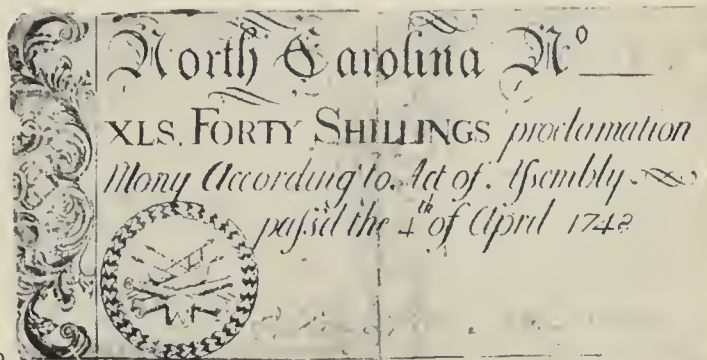 North Carolina Nº
XLS. FORTY SHILLINGS proclamation
Mony According to Act of Aſsembly
paſs'd the 4th of April 1748